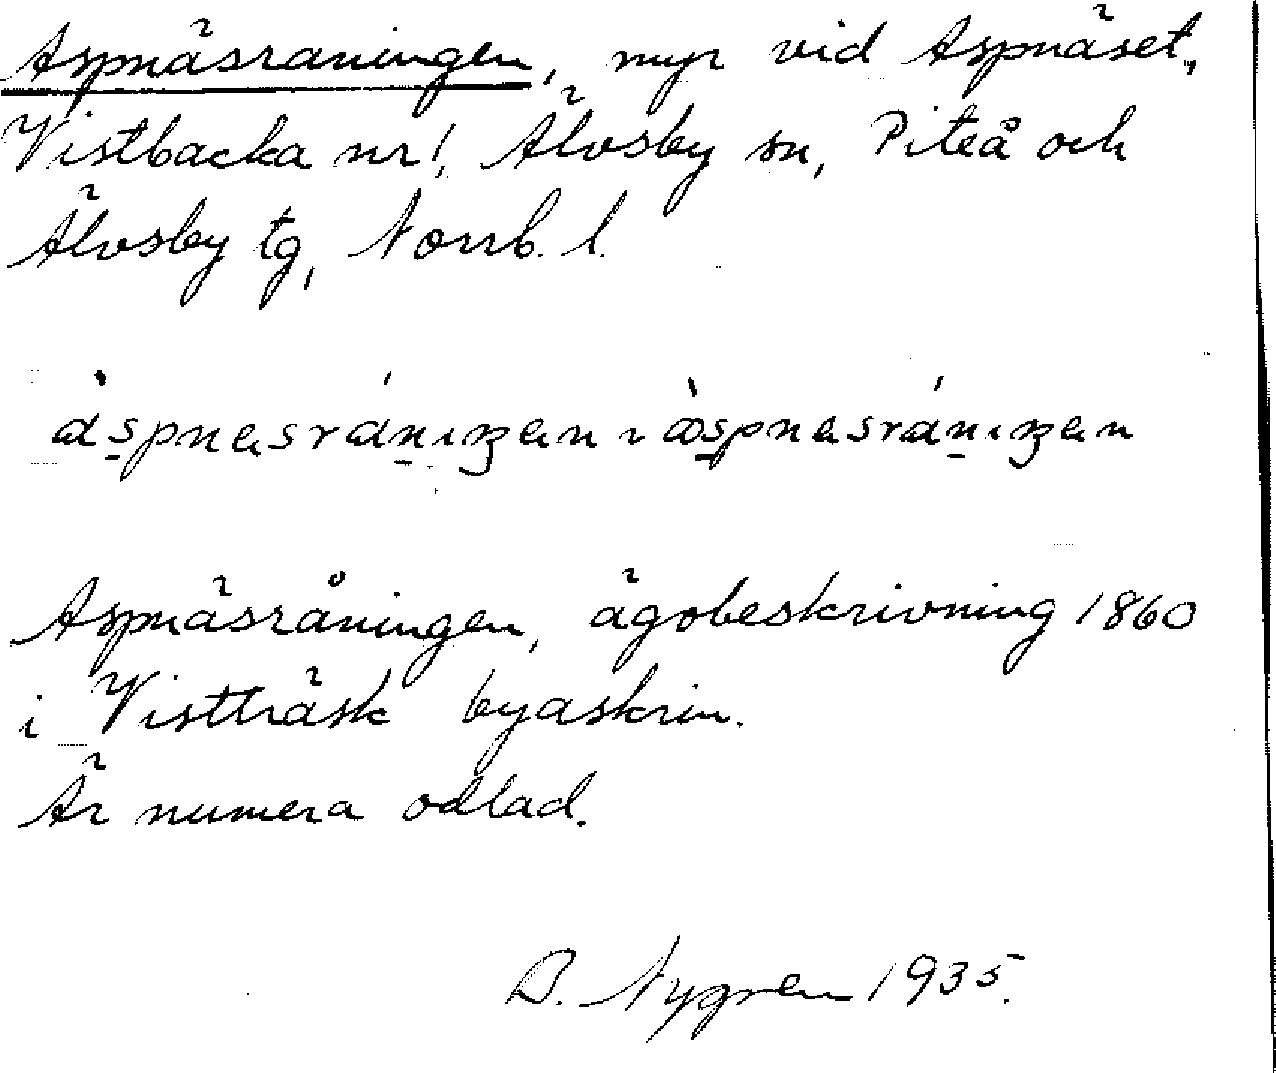 Aspnäsraningen, myr vid Aspnäset,
Vistbacka nr 1, Älvsby sn, Piteå och
Älvsby tg, Norrb. l.
àspnesrániŋen ~ æ̀spnesrániŋen
Aspnäsråningen, ägobeskrivning 1860
i Vistträsk byaskrin.
Är numera odlad.
B. Nygren 1935.